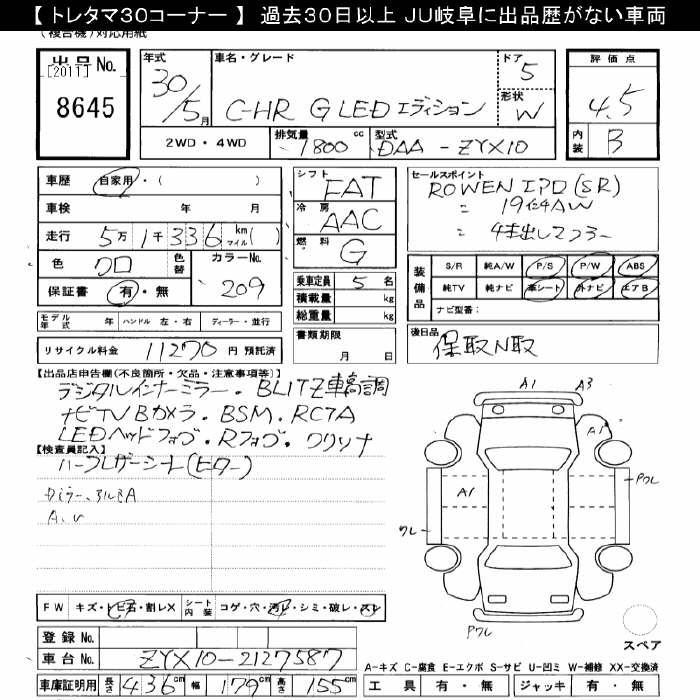 【トレタマ30コーナー】 過去30日以上 JU岐阜に出品歴がない車両
(複合機)対応用紙
出品No.
[2011]
8645
年式 車名・グレード ドア 5
30/5月 C-HR G LED エディション 形状 W
2WD・4WD 排気量 1800 cc 型式 DAA-ZYX10
評価点
4.5
内装 B
車歴 自家用・( )
車検 年 月
走行 5万1千336 km マイル( )
色 クロ 色替 カラーNo. 209
保証書 有・無
シフト FAT
冷房 AAC
燃料 G
乗車定員 5 名
積載量 kg
総重量 kg
セールスポイント
ROWEN IPD(SR)
= 19インチAW
= 4本出しマフラー
装備品 S/R 純A/W P/S P/W ABS
純TV 純ナビ 革シート 外ナビ エアB
ナビ型番:
モデル年式 年 ハンドル 左・右 ディーラー・並行
リサイクル料金 11270 円 預託済
書類期限
月 日
後日品
保取N取
【出品店申告欄(不良箇所・欠品・注意事項等)】
デジタルインナーミラー・BLITZ車高調
ナビTVBカメラ・BSM・RCTA
LEDヘッドフォグ・Rフォグ・クリソナ
【検査員記入】
ハーフレザーシート(ヒーター)
A.U
A1 A3
A1
Pワレ
A1
ワレ
Pワレ
スペア
FW キズ・トビ石・割レX シート内装 コゲ・穴・汚レ・シミ・破レ・スレ
登録No.
車台No. ZYX10-2127587
車庫証明用 長さ 436cm 幅 179cm 高さ 155cm
A-キズ C-腐食 E-エクボ S-サビ U-凹ミ W-補修 XX-交換済
工具 有・無 ジャッキ 有・無